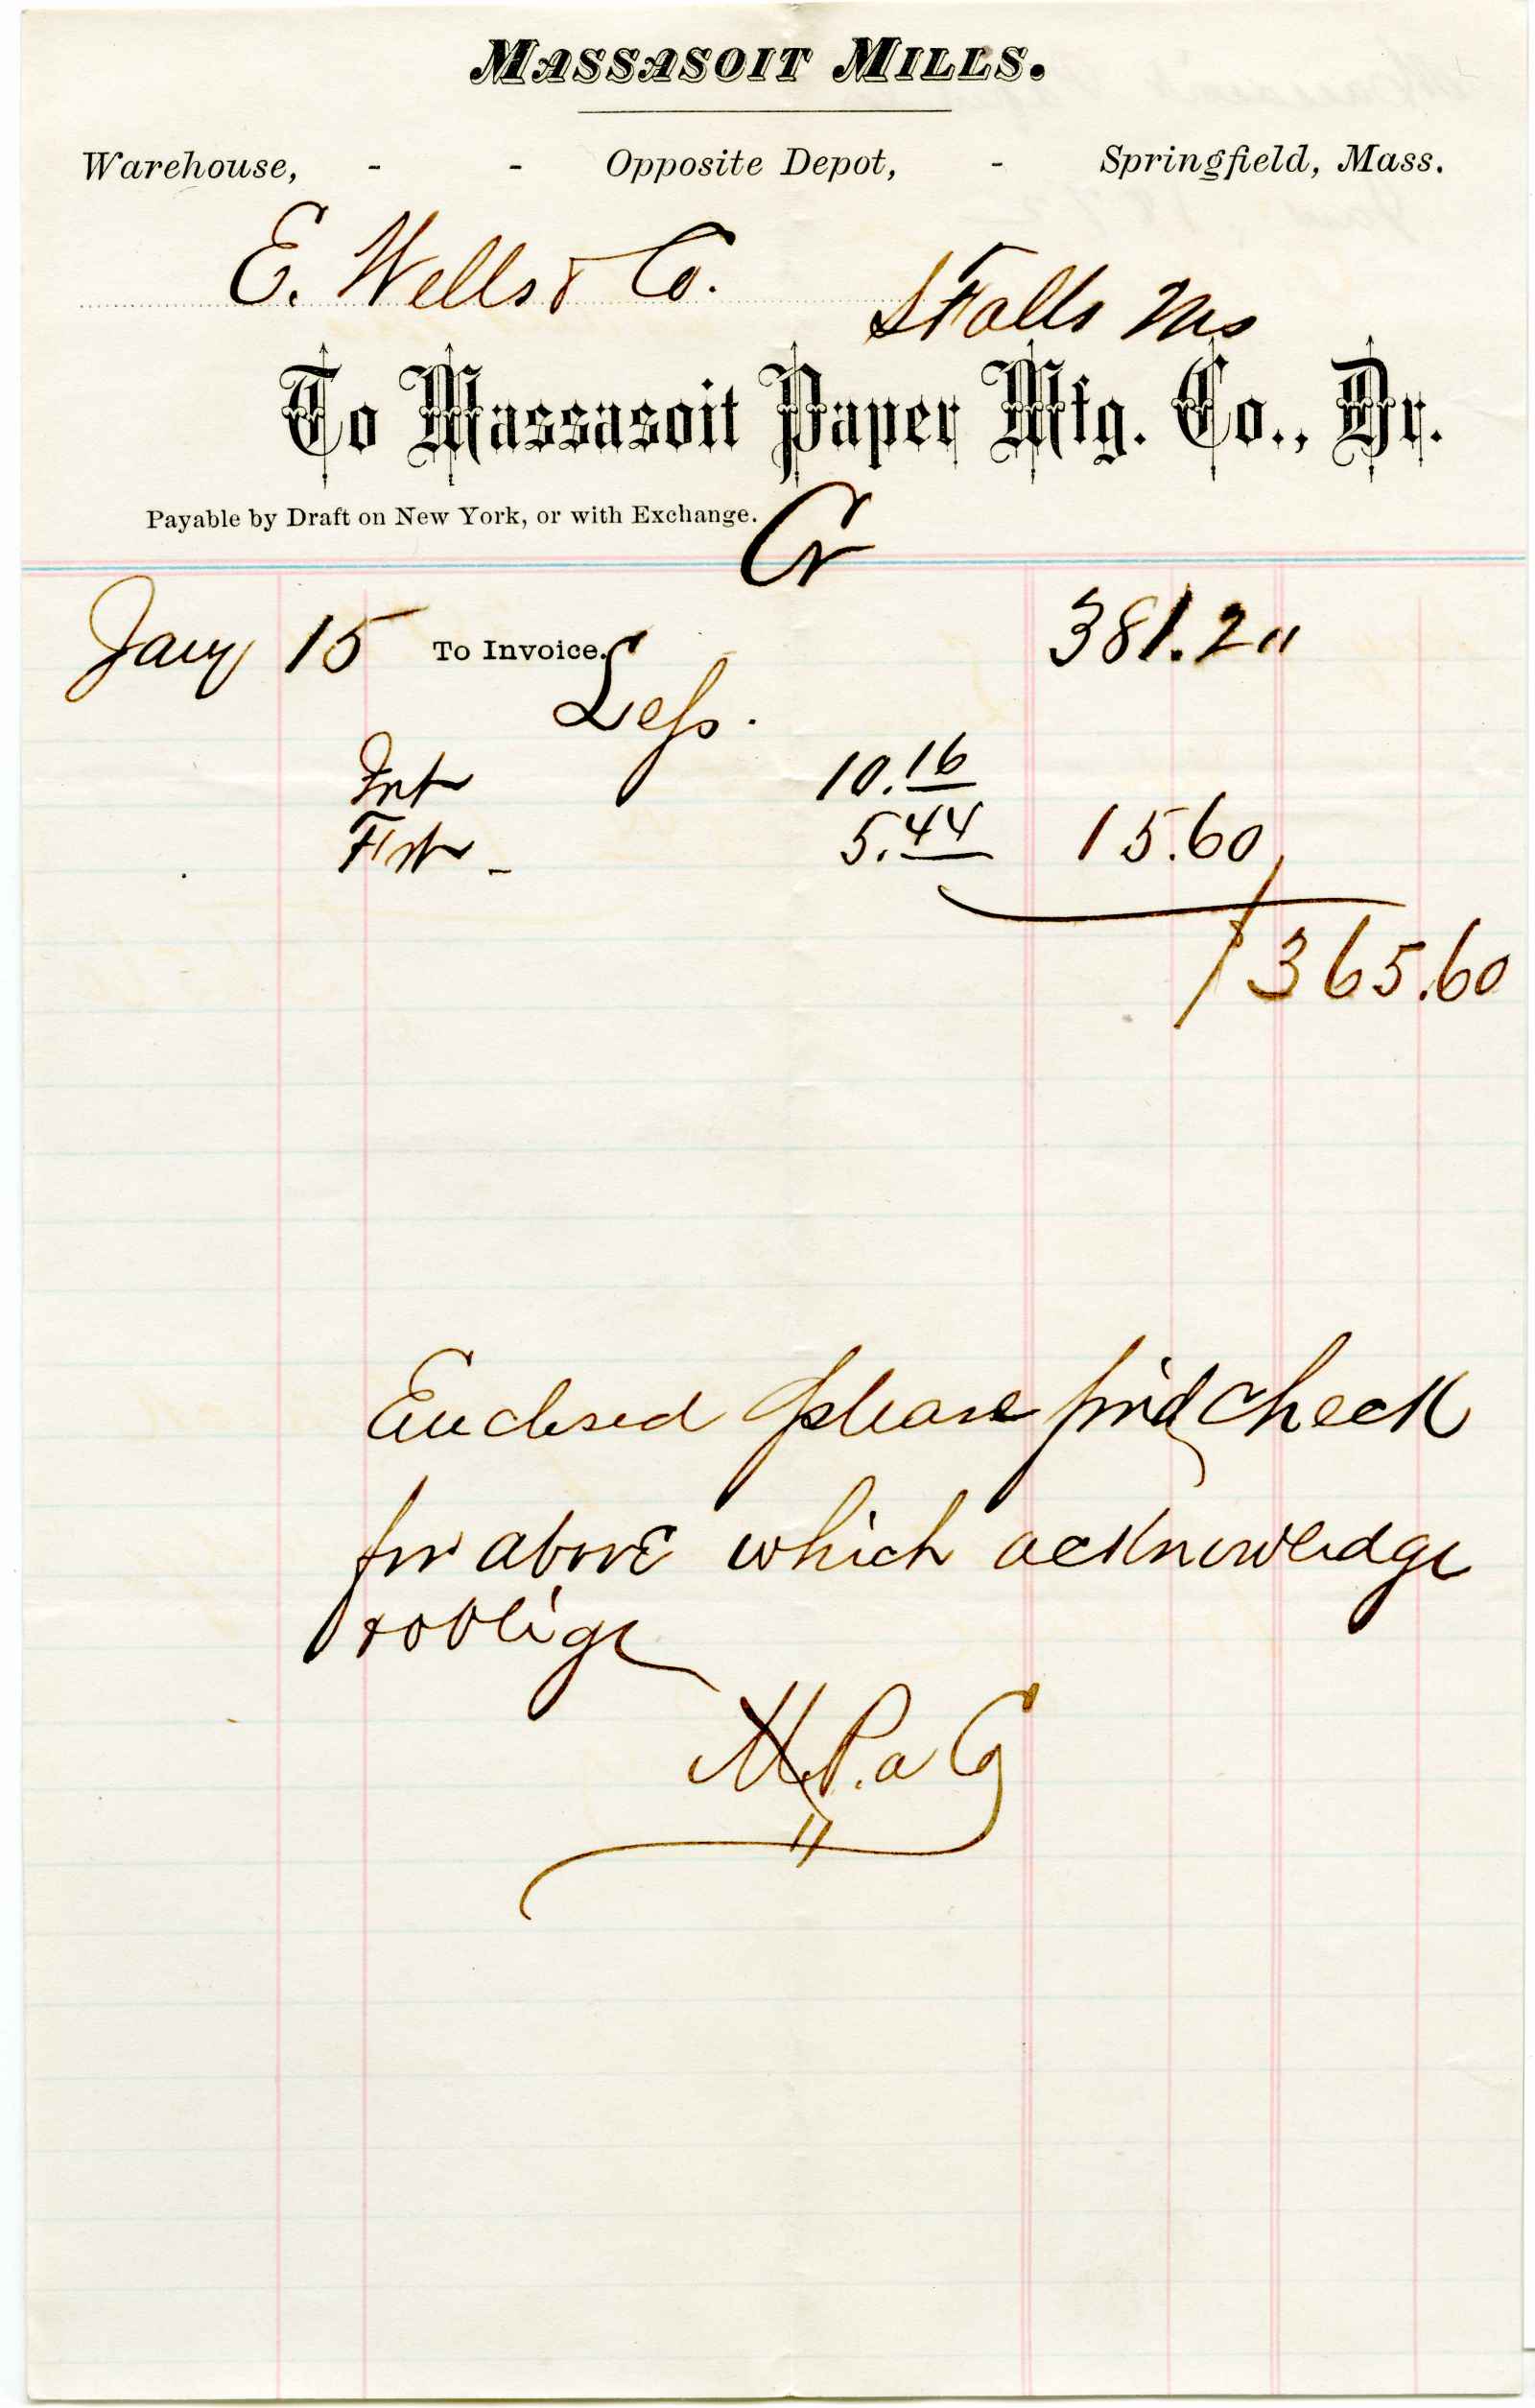 MASSASOIT MILLS.
Warehouse, - - Opposite Depot, - Springfield, Mass.
E. Wells & Co.
S Falls Ms
To Massasoit Paper Mfg. Co., Dr.
Payable by Draft on New York, or with Exchange.
Cr
Jany 15 To Invoice. 381.20
Less.
Int 10.16
Frt - 5.44 15.60
$365.60
Enclosed please find check
for above which acknowledge
& oblige
M. Pa Co